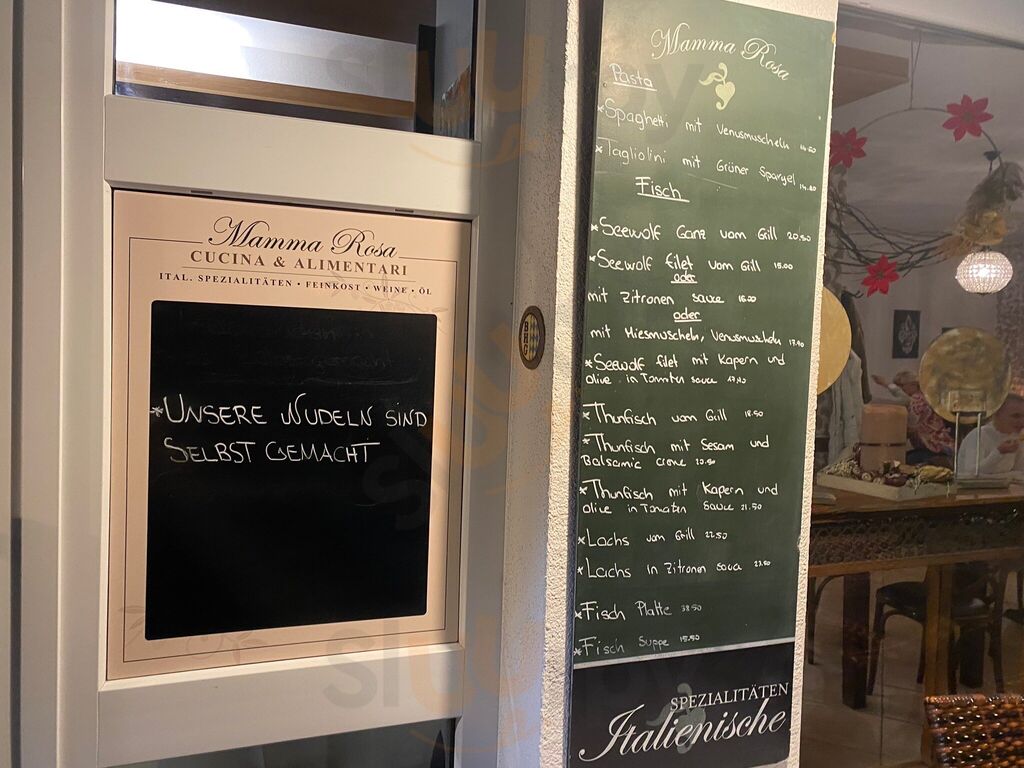 Mamma Rosa
CUCINA & ALIMENTARI
ITAL. SPEZIALITÄTEN • FEINKOST • WEINE • ÖL
*UNSERE NUDELN SIND
SELBST GEMACHT
Mamma Rosa
Pasta
*Spaghetti mit Venusmuscheln
*Tagliolini mit Grüner Spargel
Fisch
*Seewolf Ganz vom Grill 20.50
*Seewolf filet vom Grill 15.00
oder
mit Zitronen sauce 16.00
oder
mit Miesmuscheln, Venusmuscheln 17.90
*Seewolf filet mit Kapern und
olive in Tomaten sauce
*Thunfisch vom Grill 18.50
*Thunfisch mit Sesam und
Balsamic creme
*Thunfisch mit Kapern und
olive in Tomaten sauce 21.50
*Lachs vom Grill 22.50
*Lachs in Zitronen Sauce 23.50
*Fisch Platte 38.50
*Fisch Suppe 15.50
SPEZIALITÄTEN
Italienische